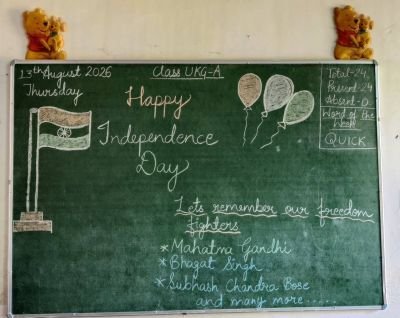 13th August 2026
Thursday
Class UKG-A
Total-24
Present-24
Absent-0
Word of the
Week
QUICK
Happy
Independence
Day
Lets remember our freedom
fighters
*Mahatma Gandhi
*Bhagat Singh
*Subhash Chandra Bose
and many more.....